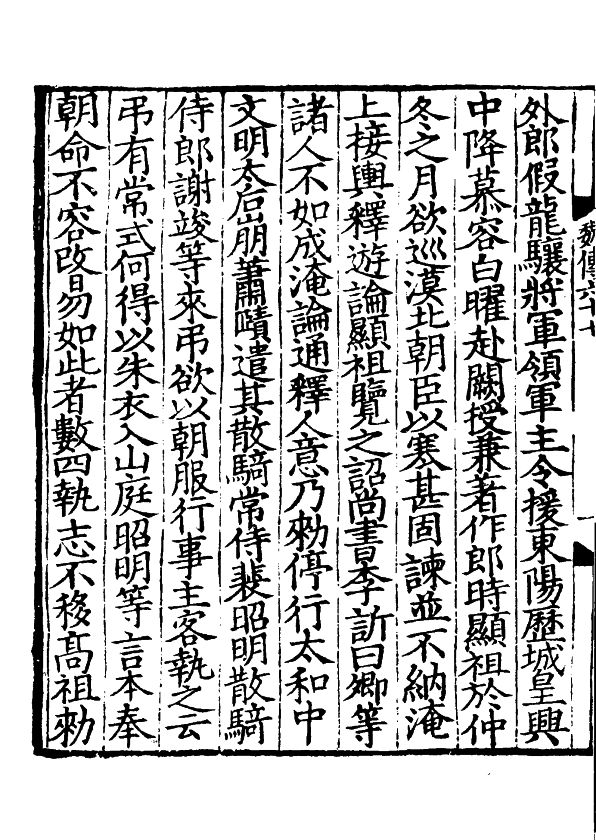 魏傳六十七
外郎假龍驤將軍領軍主令援東陽歷城皇興
中降慕容白曜赴闕授兼著作郎時顯祖於仲
冬之月欲巡漠北朝臣以寒甚固諫並不納淹
上接輿釋遊論顯祖覽之詔尚書李訢曰卿等
諸人不如成淹論通釋人意乃勑停行太和中
文明太后崩蕭賾遣其散騎常侍裴昭明散騎
侍郎謝竣等來弔欲以朝服行事主客執之云
弔有常式何得以朱衣入山庭昭明等言本奉
朝命不容改易如此者數四執志不移高祖勑